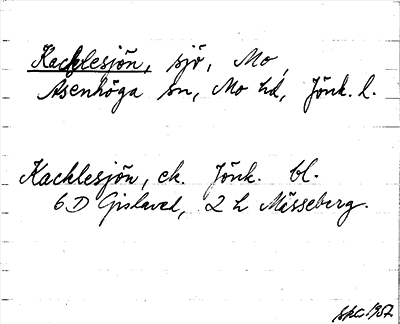 Kacklesjön, sjö, Mo,
Åsenhöga sn, Mo hd, Jönk. l.
Kacklesjön, ek. Jönk. bl.
6D Gislaved, 2 h Mässeberg.